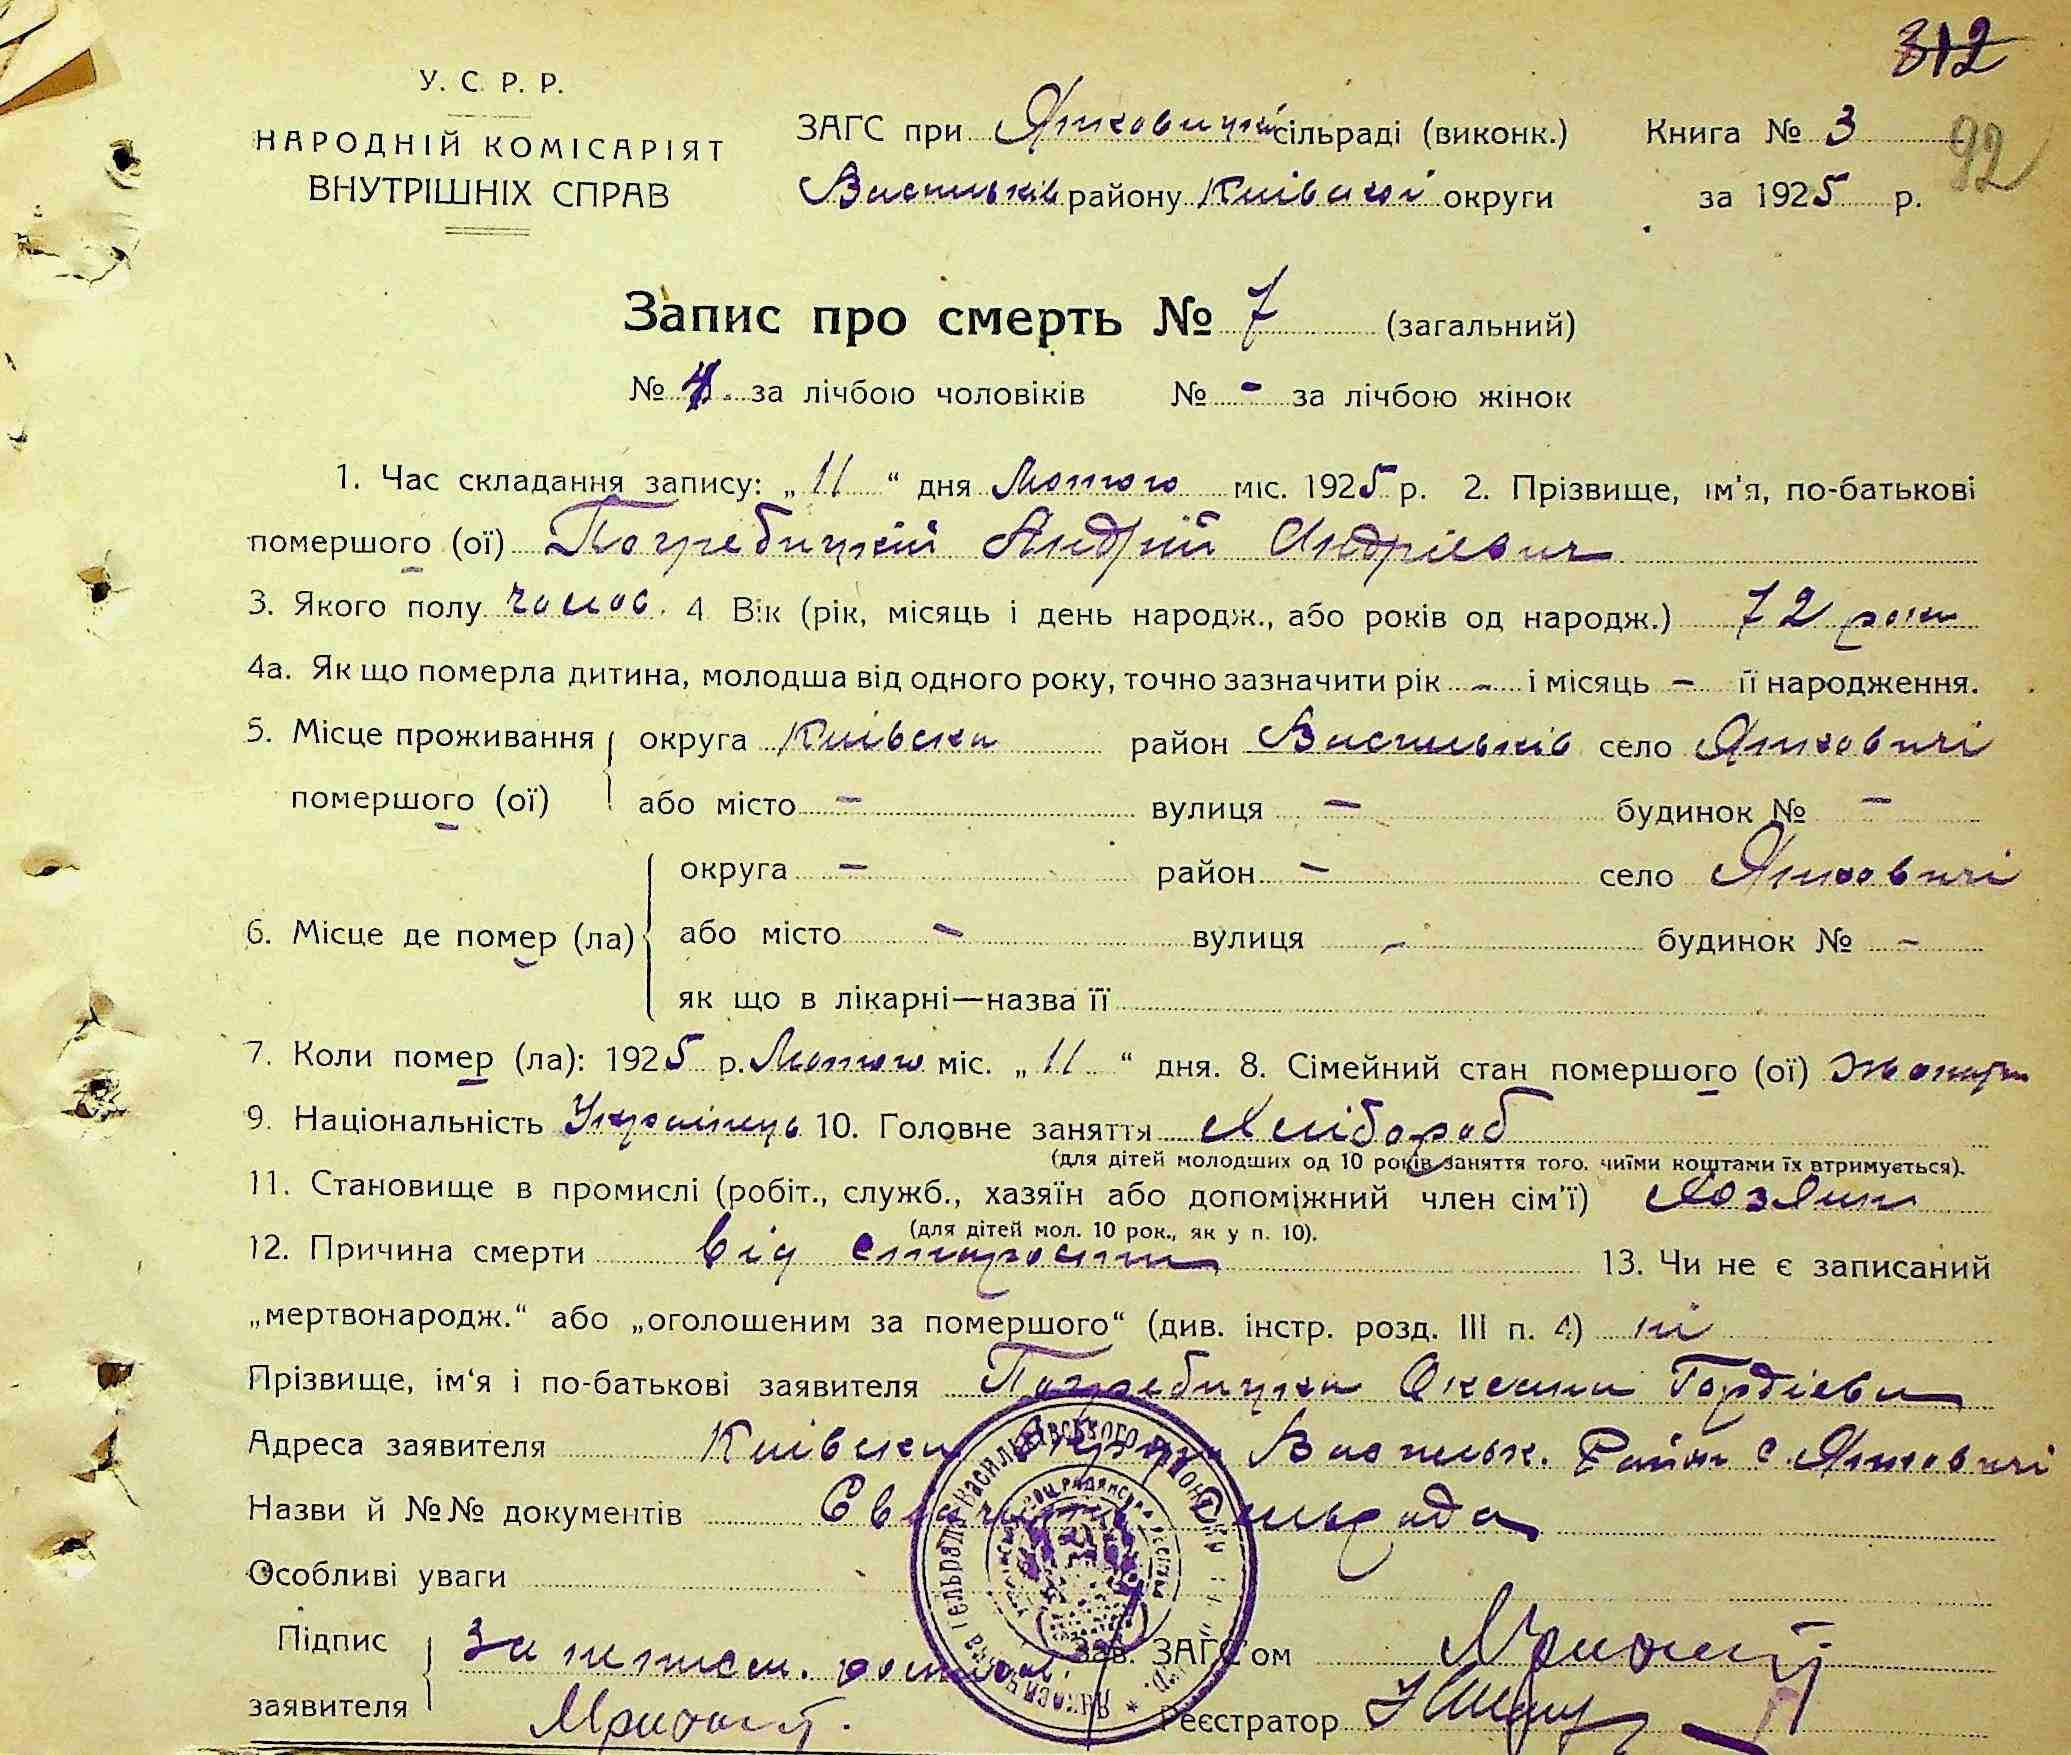 312
92
У. С. Р. Р.
НАРОДНІЙ КОМІСАРІЯТ
ВНУТРІШНІХ СПРАВ
ЗАГС при сільраді (виконк.) Книга № 3
Васильків району Київської округи за 1925 р.
Запис про смерть № 7 (загальний)
№ 4. за лічбою чоловіків № - за лічбою жінок
1. Час складання запису: „11“ дня Лютого міс. 1925 р. 2. Прізвище, ім'я, по-батькові
помершого (ої) Погребицкій Андрій Андріевич
3. Якого полу чолов. 4 Вік (рік, місяць і день народж., або років од народж.) 72 роки
4а. Як що померла дитина, молодша від одного року, точно зазначити рік - і місяць - її народження.
5. Місце проживання округа Київська район Васильків село Яцковичі
помершого (ої) або місто - вулиця - будинок № -
округа - район - село Яцковичі
6. Місце де помер (ла) або місто - вулиця - будинок № -
як що в лікарні—назва її
7. Коли помер (ла): 1925 р. Лютого міс. „11“ дня. 8. Сімейний стан помершого (ої)
9. Національність Українець 10. Головне заняття Хлібороб
(для дітей молодших од 10 років заняття того, чиїми коштами їх втримується).
11. Становище в промислі (робіт., служб., хазяїн або допоміжний член сім'ї) Хозяин
(для дітей мол. 10 рок., як у п. 10).
12. Причина смерти від старости 13. Чи не є записаний
„мертвонародж.“ або „оголошеним за помершого“ (див. інстр. розд. III п. 4) ні
Прізвище, ім'я і по-батькові заявителя Погребицка Оксана Гордіевна
Адреса заявителя Київска Округа Васильк. Район с. Яцковичі
Назви й №№ документів Сільрада
Особливі уваги
Підпис За Зав. ЗАГС'ом
заявителя Реєстратор